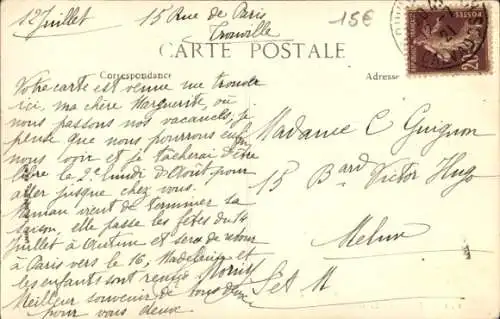 12 Juillet 15 Rue de Paris
Trouville
15€
CARTE POSTALE
Correspondance
Adresse
Votre carte est venue me trouver
ici, ma chère Marguerite, où
nous passons nos vacances, je
pense que nous pourrons enfin
nous voir et je tâcherai d'être
libre le 2e lundi d'Août pour
aller jusque chez vous.
Maman vient de terminer sa
saison, elle passe les fêtes du 14
Juillet à et sera de retour
à Paris vers le 16, Madeleine et
les enfants sont
Meilleur souvenir de tous deux
pour vous deux
Madame C Guignon
15 Bard Victor Hugo
Melun
S et M
POSTES